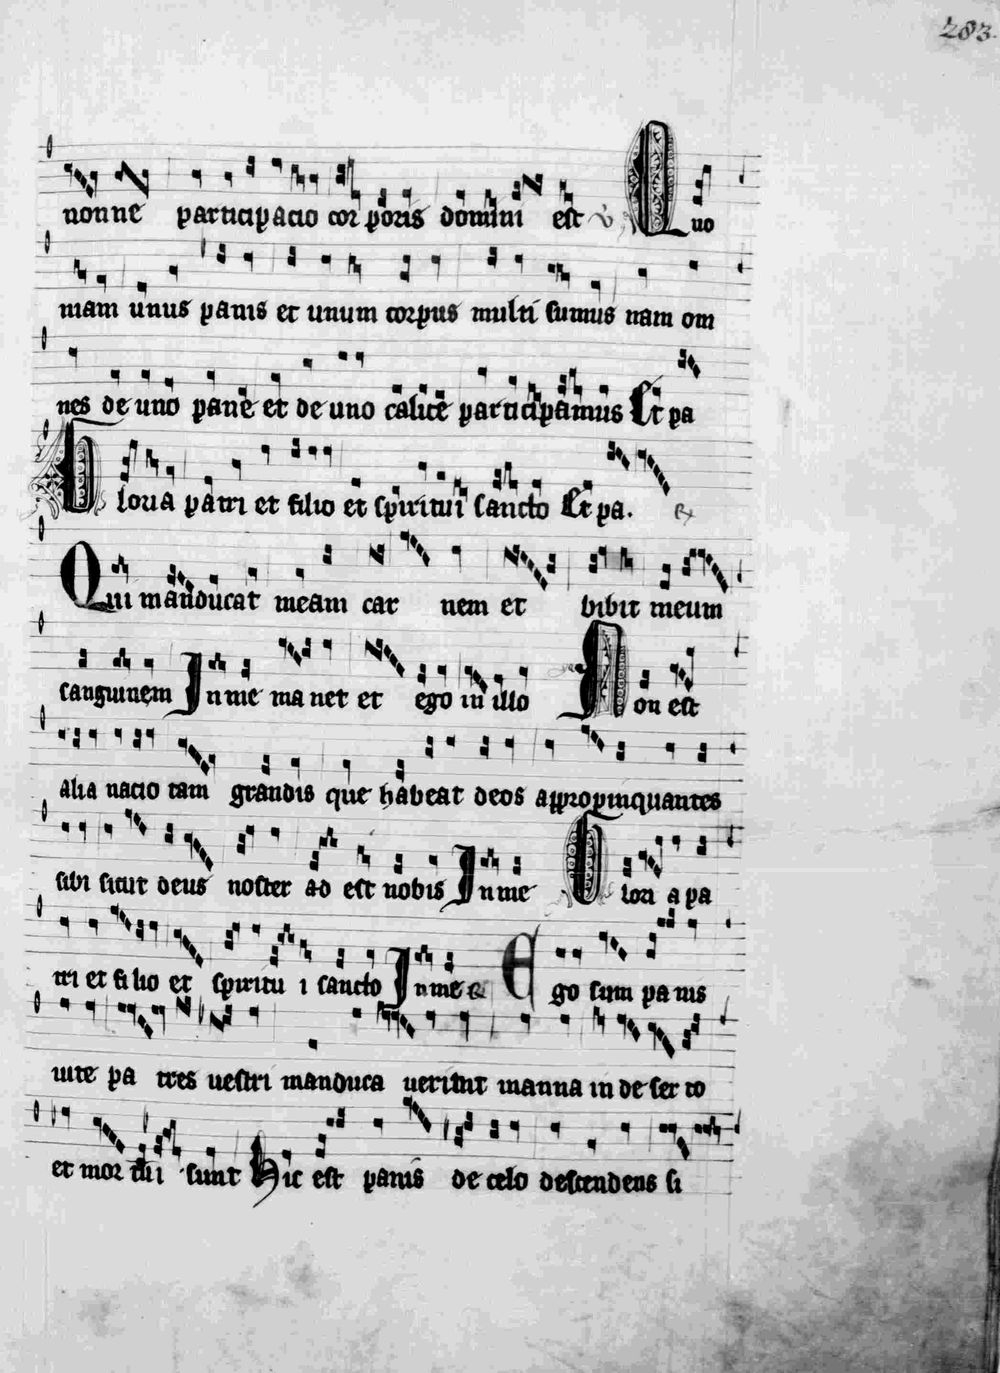 283.
nonne participacio corporis domini est v Quo
niam unus panis et unum corpus multi sumus nam om
nes de uno pane et de uno calice participamus Et pa
Gloria patri et filio et spiritui sancto Et pa. R
Qui manducat meam car nem et bibit meum
sanguinem In me ma net et ego in illo Non est
alia nacio tam grandis que habeat deos appropinquantes
sibi sicut deus noster ad est nobis In me Glori a pa
tri et filio et spiritu i sancto In me R Ego sum pa nis
uite pa tres uestri manduca uerunt manna in de ser to
et mor tui sunt Hic est panis de celo descendens si